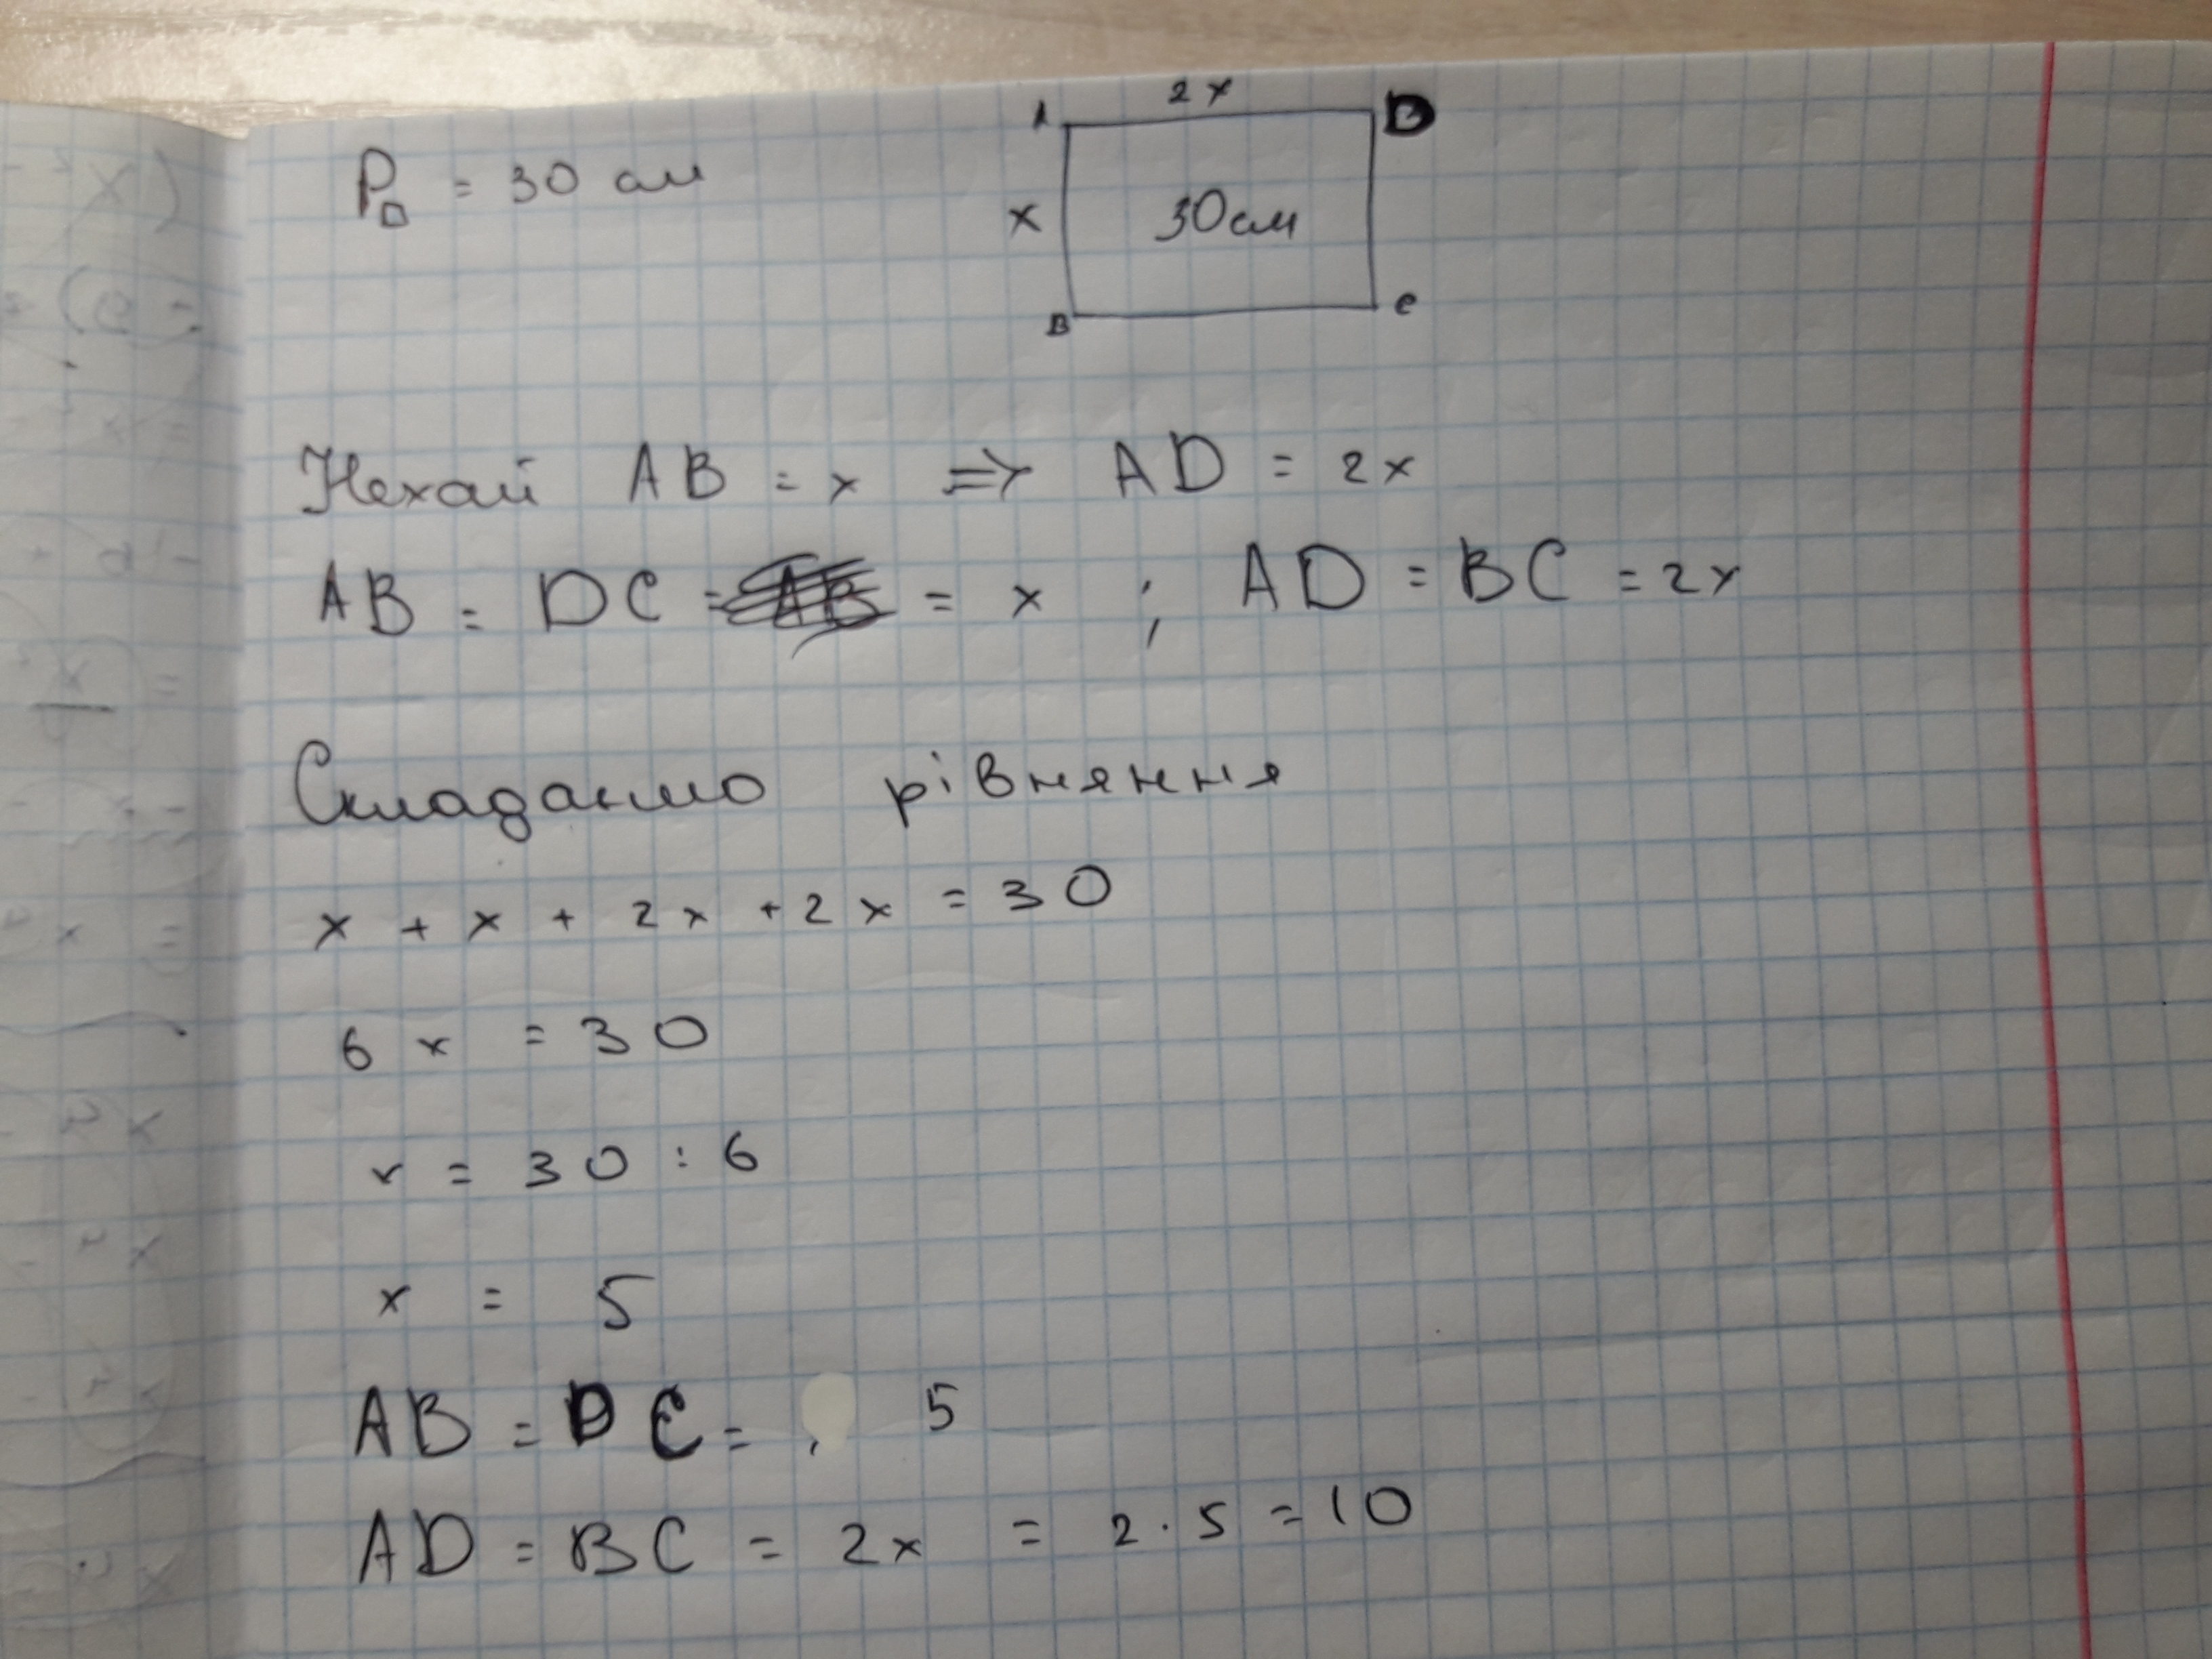 P□ = 30 см
2x
A D
x 30см
B C
Нехай AB = x => AD = 2x
AB = DC = = x ; AD = BC = 2x
Складаємо рівняння
x + x + 2x + 2x = 30
6x = 30
x = 30 : 6
x = 5
AB = DC = 5
AD = BC = 2x = 2 · 5 = 10